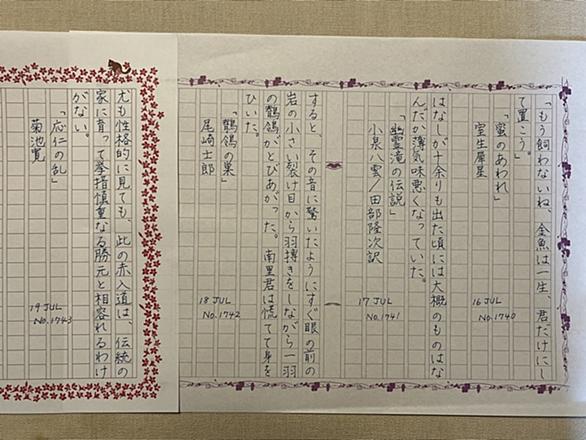 「もう飼わないね、金魚は一生、君だけにし
て置こう。」
「蜜のあわれ」
室生犀星
16 JUL
No.1740
はなしが十余りも出た頃には大概のものはな
んだか薄気味悪くなっていた。
「幽霊滝の伝説」
小泉八雲/田部隆次訳
17 JUL
No.1741
すると、その音に驚いたようにすぐ眼の前の
岩の小さい裂け目から羽搏きをしながら一羽
の鶺鴒がとびあがった。南里君は慌てて身を
ひいた。
「鶺鴒の巣」
尾崎士郎
18 JUL
No.1742
尤も性格的に見ても、此の赤入道は、伝統の
家に育って挙措慎重なる勝元と相容れるわけ
がない。
「応仁の乱」
菊池寛
19 JUL
No.1743